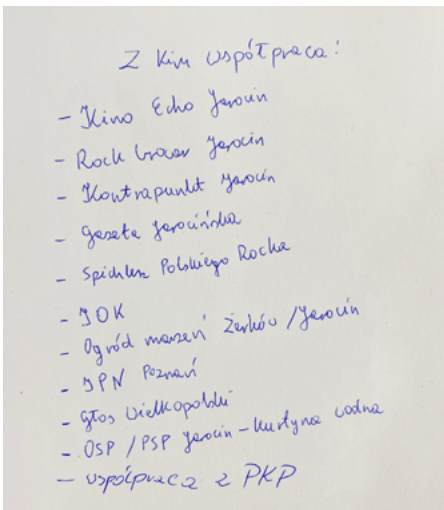 Z kim współpraca:
- Kino Echo Jarocin
- Rock browar Jarocin
- Kontrapunkt Jarocin
- gazeta Jarocińska
- Spichlerz Polskiego Rocka
- JOK
- Ogród marzeń Żerków / Jarocin
- IPN Poznań
- Głos Wielkopolski
- OSP / PSP Jarocin - kurtyna wodna
- współpraca z PKP